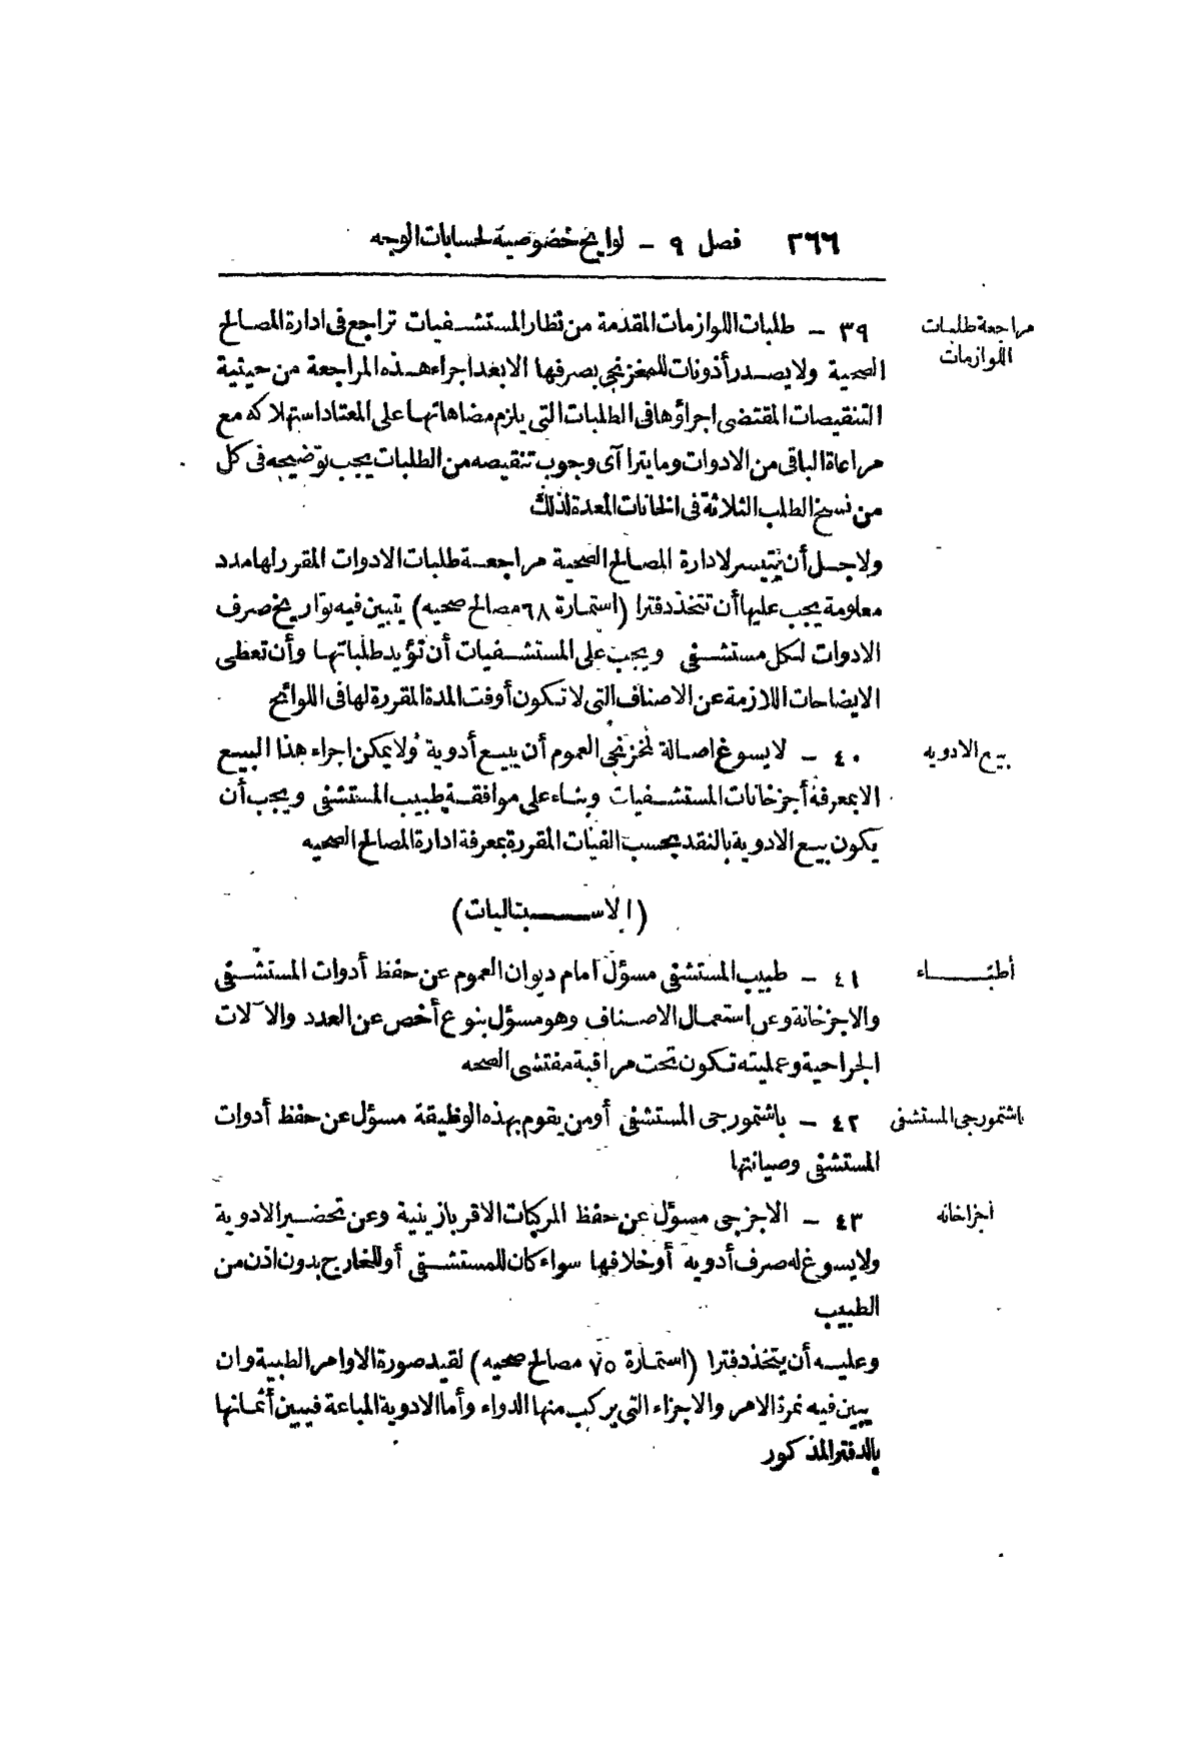 ٢٦٦ فصل ٩ – لوايح خصوصية لحسابات الوجه
مراجعة طلبات
اللوازمات
٣٩ – طلبات اللوازمات المقدمة من نظار المستشفيات تراجع فى ادارة المصالح
الصحية ولا يصدر أذونات للمخزنجى بصرفها الا بعد اجراء هذه المراجعة من حيثية
التنقيصات المقتضى اجراؤها فى الطلبات التى يلزم مضاهاتها على المعتاد استهلاكه مع
مراعاة الباقى من الادوات وما يتراآى وجوب تنقيصه من الطلبات يجب توضيحه فى كل
من نسخ الطلب الثلاثة فى الخانات المعدة لذلك
ولاجل أن يتيسر لادارة المصالح الصحية مراجعة طلبات الادوات المقرر لها مدد
معلومة يجب عليها أن تتخذ دفترا (استمارة ٦٨ مصالح صحيه) يتبين فيه تواريخ صرف
الادوات لكل مستشفى ويجب على المستشفيات أن تؤيد طلباتها وأن تعطى
الايضاحات اللازمة عن الاصناف التى لا تكون أوفت المدة المقررة لها فى اللوائح
بيع الادويه
٤٠ – لا يسوغ اصالة لمخزنجى العموم أن يبيع أدوية ولا يمكن اجراء هذا البيع
الا بمعرفة أجزخانات المستشفيات وبناء على موافقة طبيب المستشفى ويجب أن
يكون بيع الادوية بالنقد بحسب الفيات المقررة بمعرفة ادارة المصالح الصحيه
(الاسبتاليات)
أطباء
٤١ – طبيب المستشفى مسؤل امام ديوان العموم عن حفظ أدوات المستشفى
والاجزخانة وعن استعمال الاصناف وهو مسؤل بنوع أخص عن العدد والآلات
الجراحية وعمليته تكون تحت مراقبة مفتشى الصحه
باشتمورجى المستشفى
٤٢ – باشتمورجى المستشفى أو من يقوم بهذه الوظيفة مسؤل عن حفظ أدوات
المستشفى وصيانتها
اجزاخانه
٤٣ – الاجزجى مسؤل عن حفظ المركبات الاقربازينية وعن تحضير الادوية
ولا يسوغ له صرف أدويه أو خلافها سواء كان للمستشفى أو للخارج بدون اذن من
الطبيب
وعليه أن يتخذ دفترا (استمارة ٧٥ مصالح صحيه) لقيد صورة الاوامر الطبية وان
يبين فيه نمرة الامر والاجزاء التى يركب منها الدواء وأما الادوية المباعة فيبين أثمانها
بالدفتر المذكور